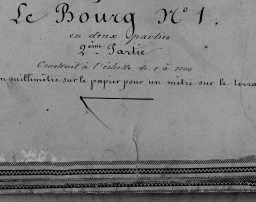 Le Bourg N° 1.
en deux parties
2ème Partie
Construit à l'échelle de 1 à 1000
un millimètre sur le papier pour un mètre sur le terra